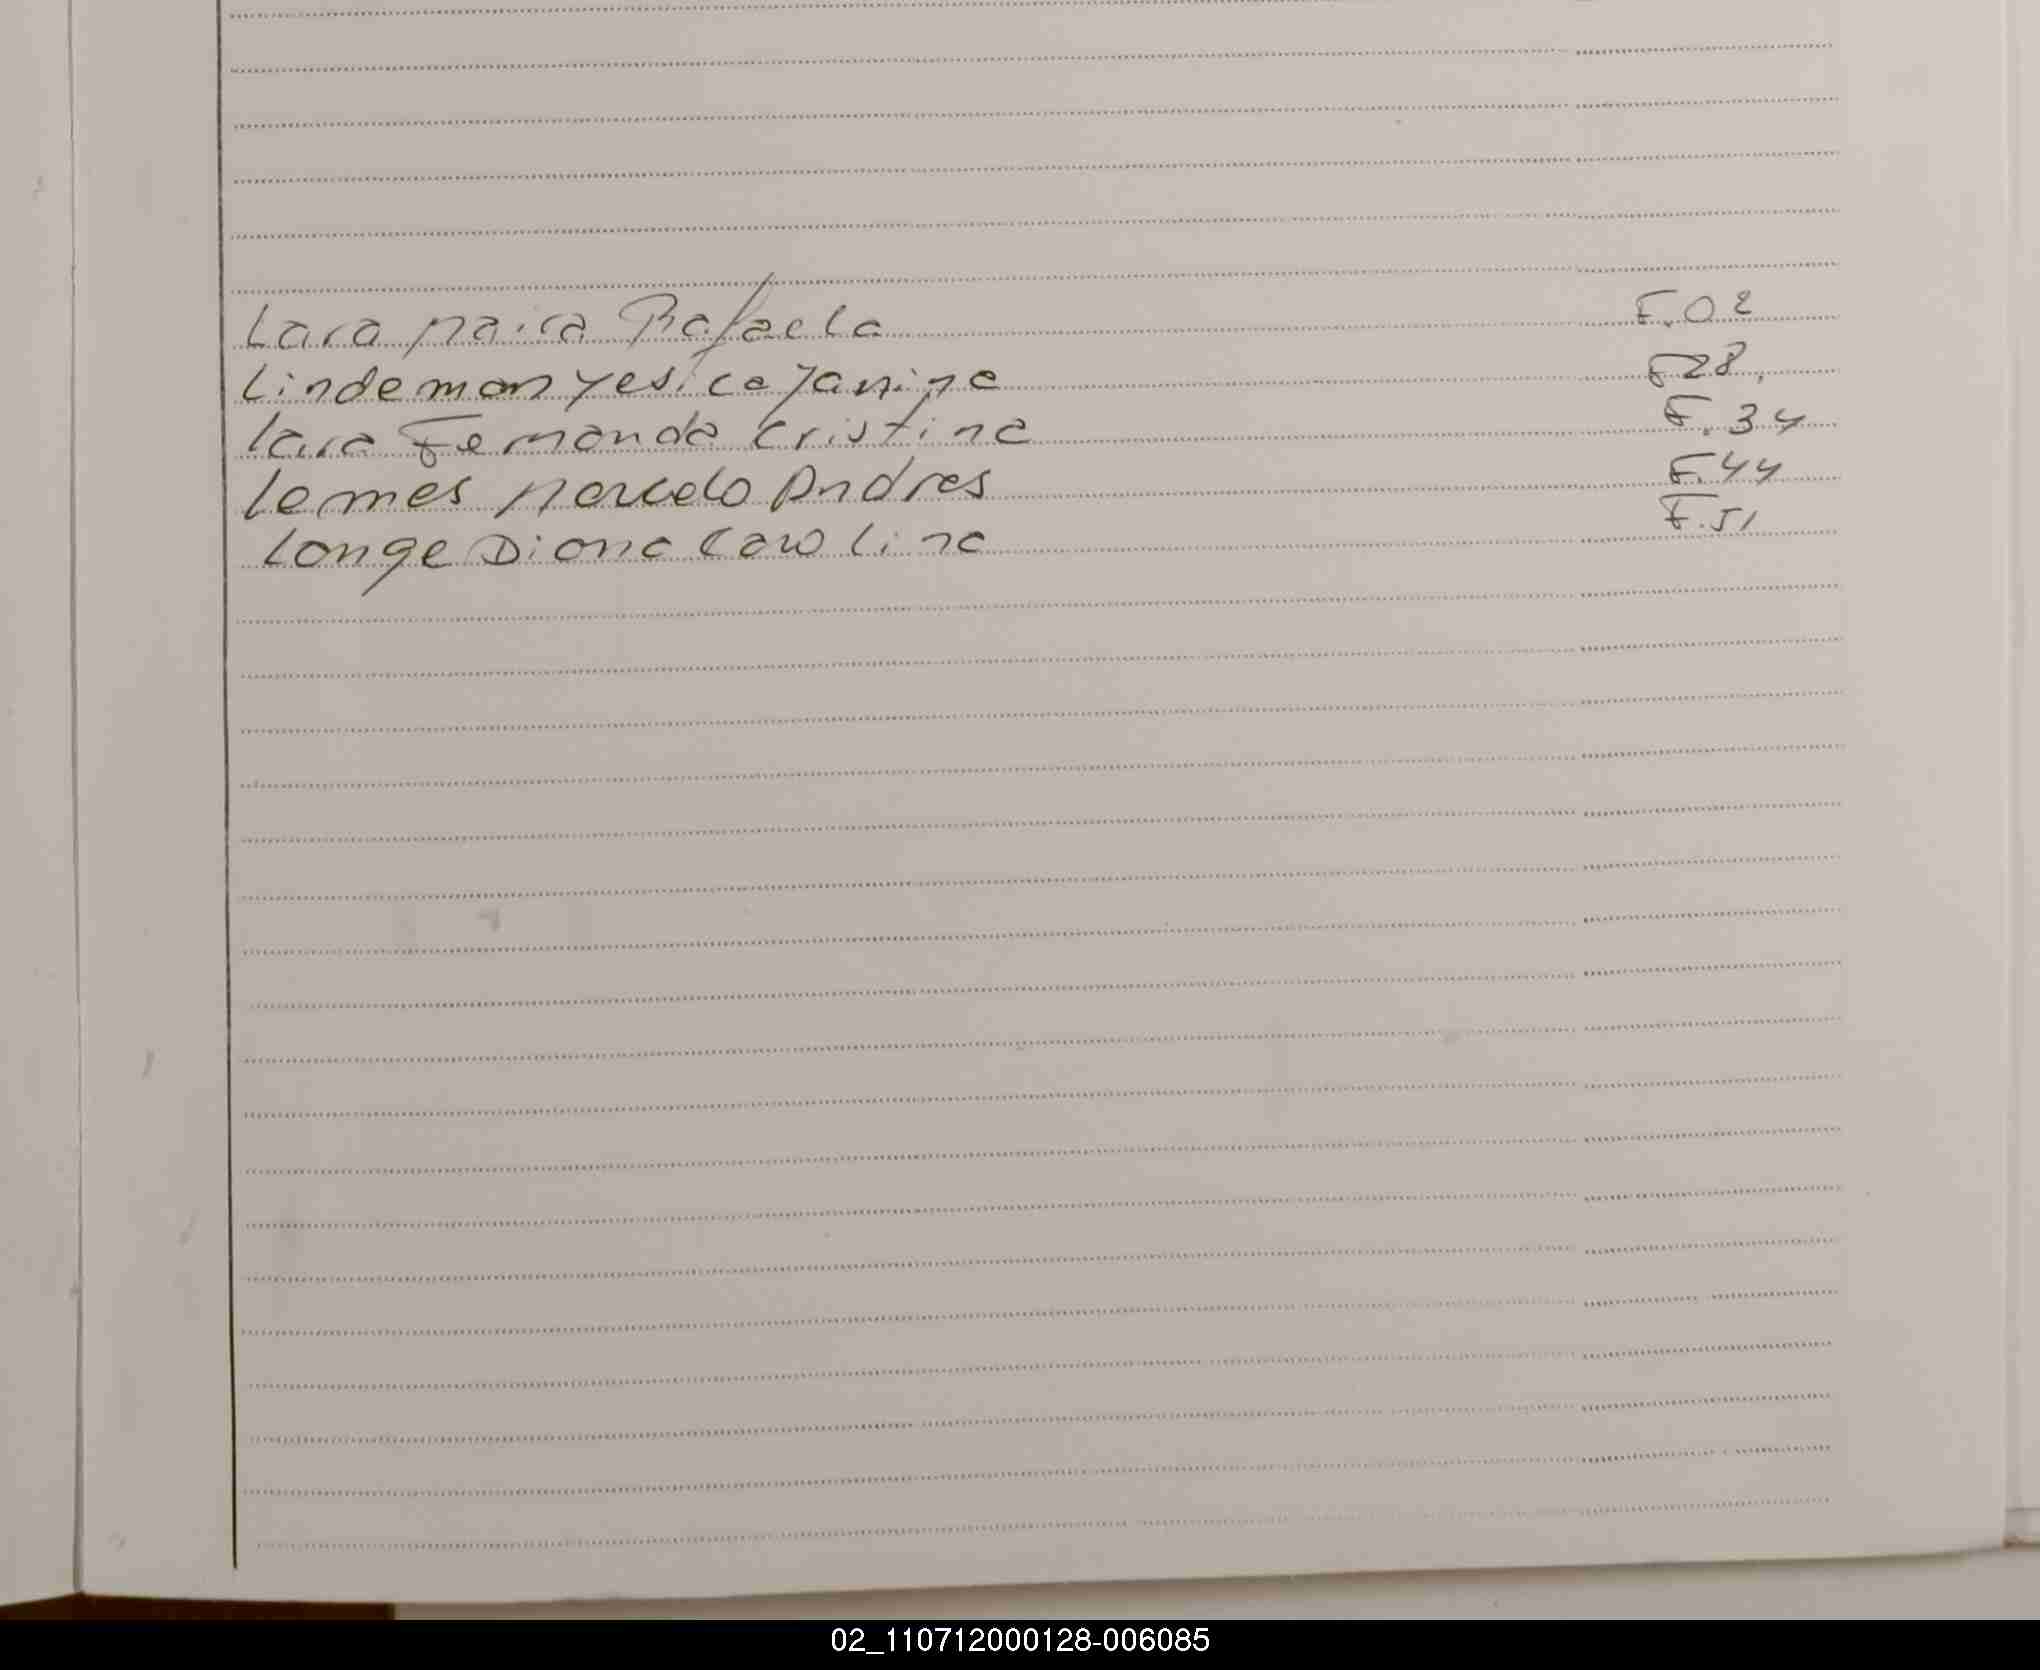 Lara Maira Rafaela F.02
Lindeman Yesica Janina F28.
Lara Fernanda Cristina F.34
Lemes Marcelo Andres F.44
Longe Diana Carolina F.51
02_110712000128-006085